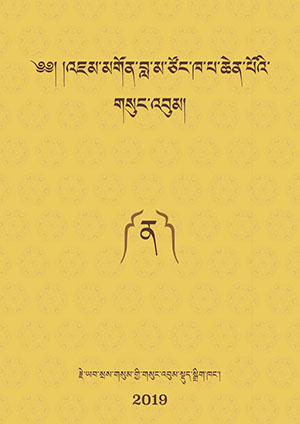 ༄༅། །འཇམ་མགོན་བླ་མ་ཙོང་ཁ་པ་ཆེན་པོའི་
གསུང་འབུམ།
ན
རྗེ་ཡབ་སྲས་གསུམ་གྱི་གསུང་འབུམ་སྡུད་སྒྲིག་ཁང་།
2019